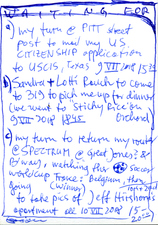 WAITING FOR
a) my turn @ PITT street
post to mail my US
CITIZENSHIP application
to USCIS, Texas 9 VII 2018 15
b) Sandra + Lotti Reich to come
to 313 to pick me up for dinner
(we went to Sticky Rice on
9 VII 2018 1845 Orchard
c) my turn to return my router
@ SPECTRUM @ great Jones? &
B/way, watching this soccer
worldcup France: Belgium, then
going (winner)
to take pics of Jeff Hirshorn's
apartment etc 10 VII 2018 15